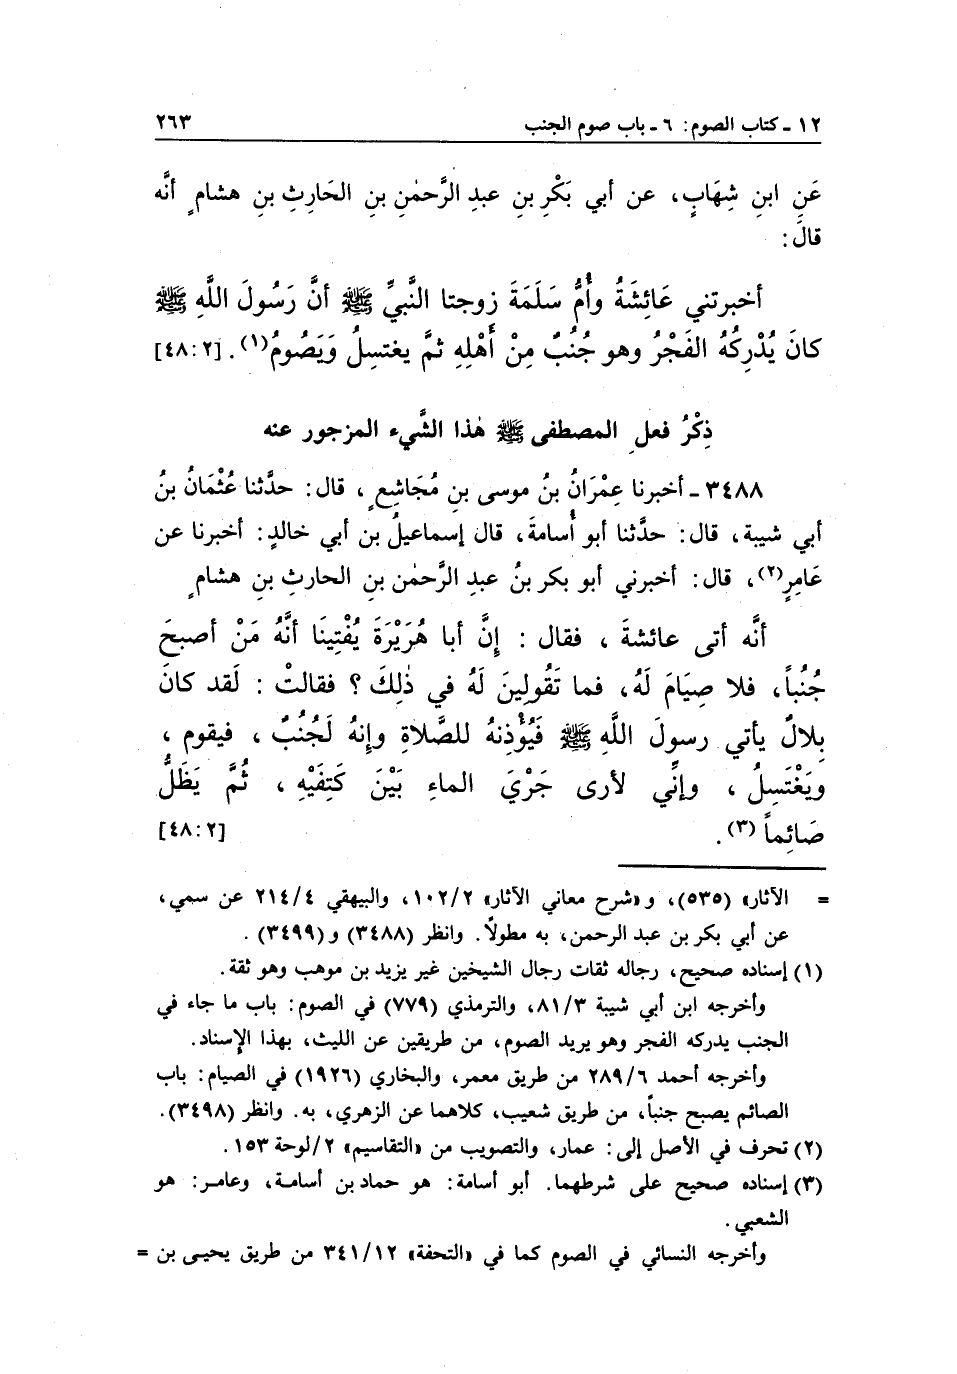 ١٢ ـ كتاب الصوم: ٦ ـ باب صوم الجنب ٢٦٣
عَنِ ابنِ شِهَابٍ، عن أبي بَكْرِ بنِ عبدِ الرَّحمٰنِ بنِ الحَارِثِ بنِ هشامٍ أنَّه
قالَ:
أخبرتني عَائِشَةُ وأُمُّ سَلَمَةَ زوجتا النَّبيِّ ﷺ أنَّ رَسُولَ اللَّهِ ﷺ
كانَ يُدْرِكُهُ الفَجْرُ وهو جُنُبٌ مِنْ أَهْلِهِ ثمَّ يغتسلُ وَيَصُومُ(١). [٤٨:٢]
ذِكْرُ فعلِ المصطفى ﷺ هٰذا الشَّيء المزجور عنه
٣٤٨٨ ـ أخبرنا عِمْرَانُ بنُ موسى بنِ مُجَاشِعٍ، قال: حدَّثنا عُثْمَانُ بنُ
أبي شيبة، قال: حدَّثنا أبو أُسامةَ، قال إسماعيلُ بن أبي خالدٍ: أخبرنا عن
عَامِرٍ(٢)، قال: أخبرني أبو بكر بنُ عبدِ الرَّحمٰن بنِ الحارثِ بنِ هشامٍ
أنَّه أتى عائشةَ، فقال: إنَّ أبا هُرَيْرَةَ يُفْتِينَا أنَّهُ مَنْ أصبحَ
جُنُباً، فلا صِيَامَ لَهُ، فما تَقُولِينَ لَهُ في ذٰلِكَ؟ فقالتْ: لَقد كانَ
بِلالٌ يأتي رسولَ اللَّهِ ﷺ فَيُؤْذِنهُ للصَّلاةِ وإنهُ لَجُنُبٌ، فيقوم،
ويَغْتَسِلُ، وإنِّي لأرى جَرْيَ الماءِ بَيْنَ كَتِفَيْهِ، ثُمَّ يَظَلُّ
صَائِماً(٣). [٤٨:٢]
= الآثار» (٥٣٥)، و«شرح معاني الآثار» ١٠٢/٢، والبيهقي ٢١٤/٤ عن سمي،
عن أبي بكر بن عبد الرحمن، به مطولاً. وانظر (٣٤٨٨) و(٣٤٩٩).
(١) إسناده صحيح، رجاله ثقات رجال الشيخين غير يزيد بن موهب وهو ثقة.
وأخرجه ابن أبي شيبة ٨١/٣، والترمذي (٧٧٩) في الصوم: باب ما جاء في
الجنب يدركه الفجر وهو يريد الصوم، من طريقين عن الليث، بهذا الإسناد.
وأخرجه أحمد ٢٨٩/٦ من طريق معمر، والبخاري (١٩٢٦) في الصيام: باب
الصائم يصبح جنباً، من طريق شعيب، كلاهما عن الزهري، به. وانظر (٣٤٩٨).
(٢) تحرف في الأصل إلى: عمار، والتصويب من «التقاسيم» ٢/لوحة ١٥٣.
(٣) إسناده صحيح على شرطهما. أبو أسامة: هو حماد بن أسامة، وعامر: هو
الشعبي.
وأخرجه النسائي في الصوم كما في «التحفة» ٣٤١/١٢ من طريق يحيى بن =